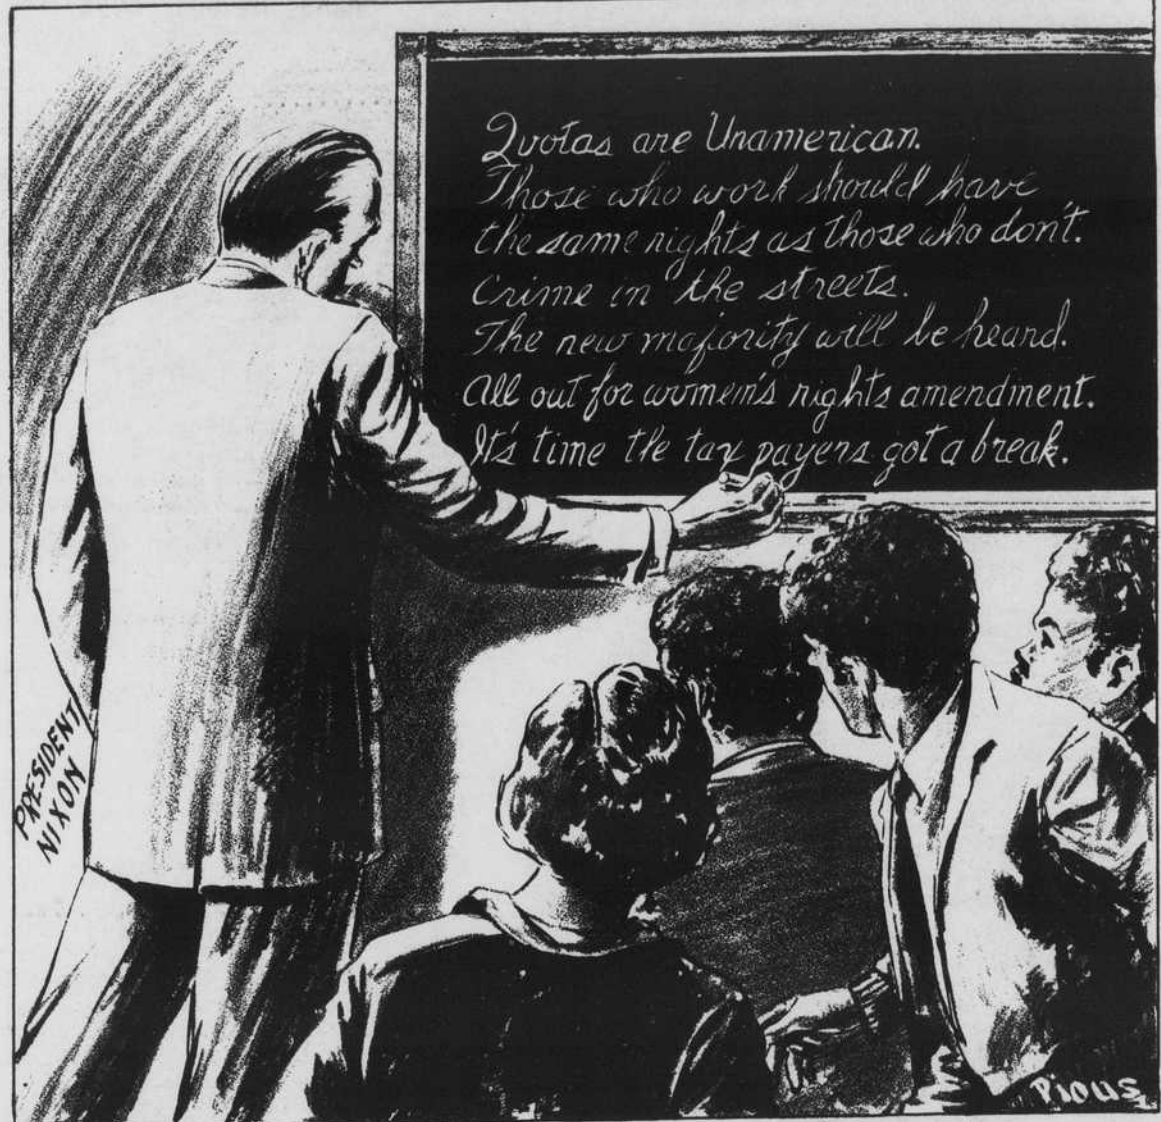 Quotas are Unamerican.
Those who work should have
the same rights as those who don't.
Crime in the streets.
The new majority will be heard.
All out for women's rights amendment.
It's time the tax payers got a break.
PRESIDENT
NIXON
Pious